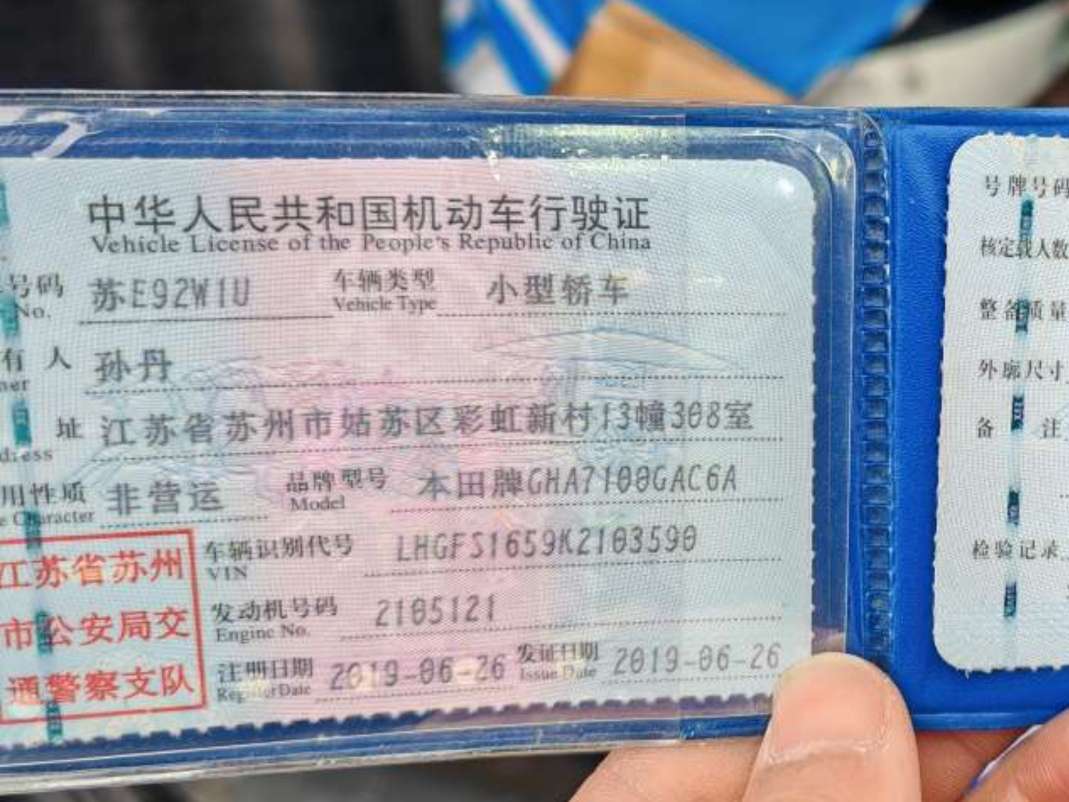 中华人民共和国机动车行驶证
Vehicle License of the People's Republic of China
号码 苏E92W1U 车辆类型 小型轿车
No. Vehicle Type
有人 孙丹
ner
址 江苏省苏州市姑苏区彩虹新村13幢308室
dress
用性质 非营运 品牌型号 本田牌GHA7100GAC6A
e Character Model
江苏省苏州
市公安局交
通警察支队
车辆识别代号 LHGFS1659K2103590
VIN
发动机号码 2105121
Engine No.
注册日期 2019-06-26 发证日期 2019-06-26
Register Date Issue Date
号牌号码
核定载人数
整备质量
外廓尺寸
备注
检验记录